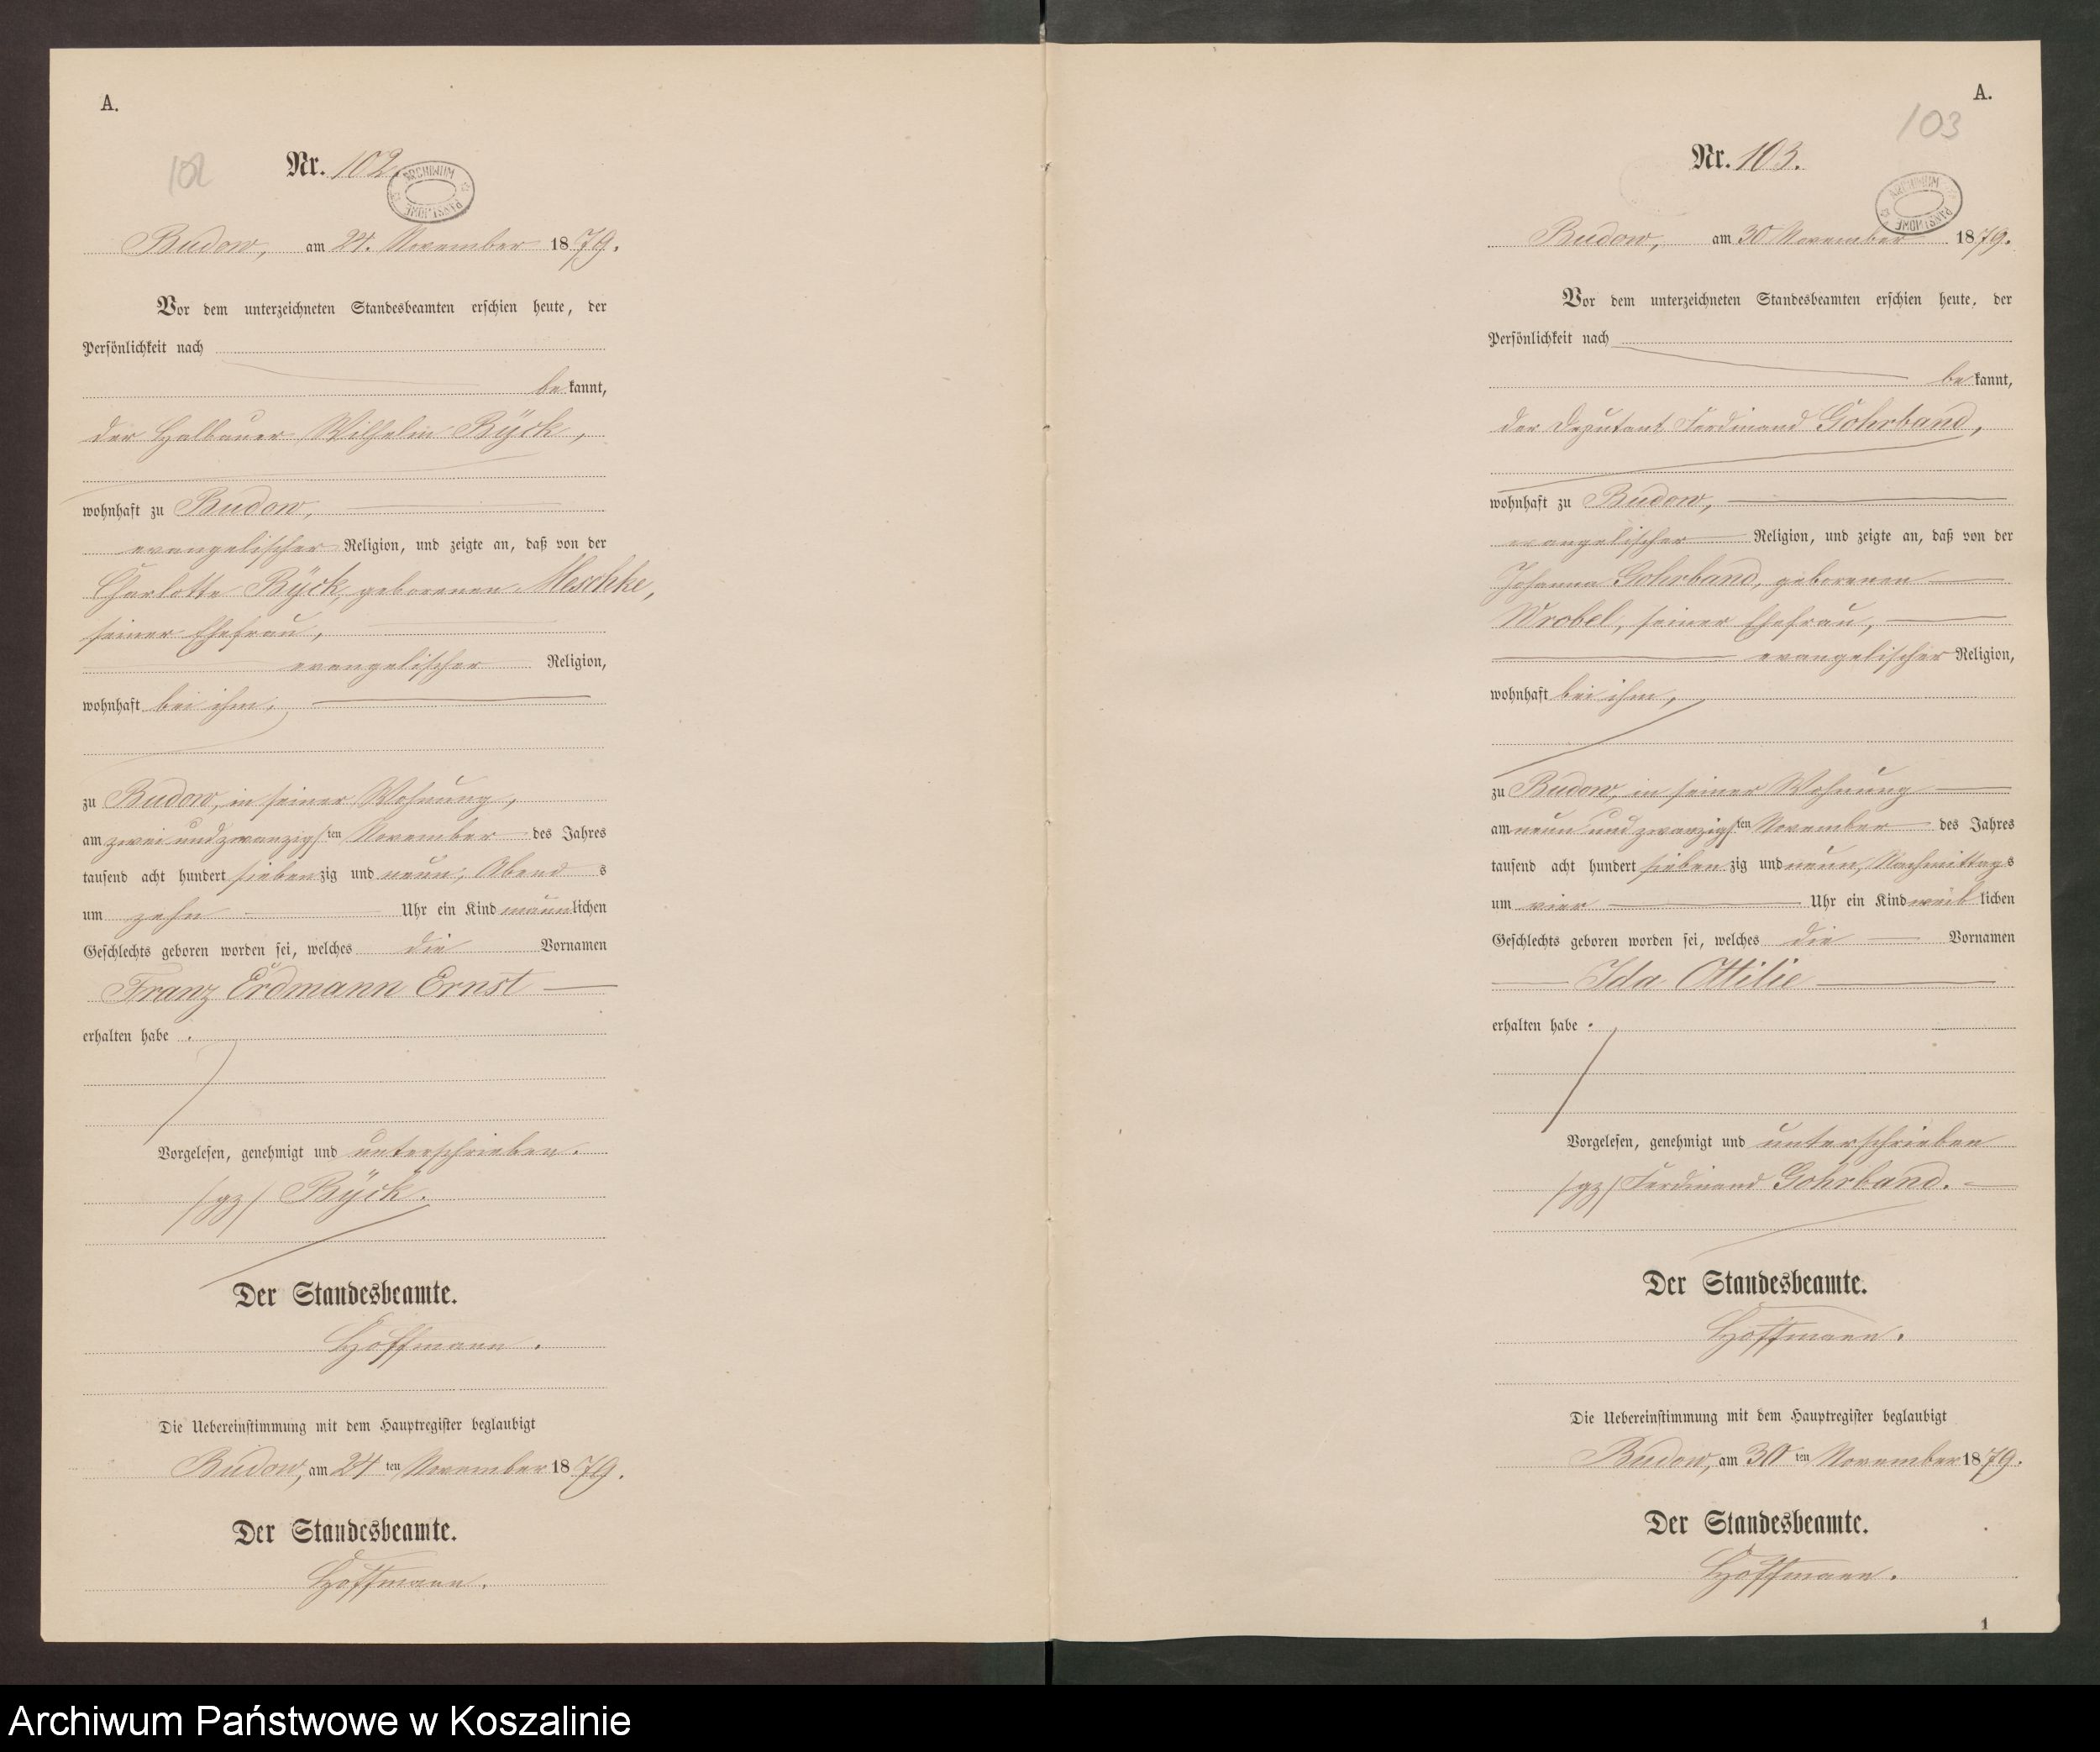 A.
102
Nr. 102.
ARCHIWUM PAŃSTWOWE
Budow, am 24. November 1879.
Vor dem unterzeichneten Standesbeamten erschien heute, der
Persönlichkeit nach
bekannt,
der Halbauer Wilhelm Bÿck,
wohnhaft zu Budow,
evangelischer Religion, und zeigte an, daß von der
Charlotte Bÿck, geborenen Meschke,
seiner Ehefrau,
evangelischer Religion,
wohnhaft bei ihm,
zu Budow, in seiner Wohnung,
am zwei und zwanzigsten November des Jahres
tausend acht hundert siebenzig und neun, Abends
um zehn Uhr ein Kind männlichen
Geschlechts geboren worden sei, welches die Vornamen
Franz Erdmann Ernst
erhalten habe.
Vorgelesen, genehmigt und unterschrieben.
/gz/ Bÿck.
Der Standesbeamte.
Hoffmann.
Die Uebereinstimmung mit dem Hauptregister beglaubigt
Budow, am 24ten November 1879.
Der Standesbeamte.
Hoffmann.
A.
103
Nr. 103.
ARCHIWUM PAŃSTWOWE
Budow, am 30 November 1879.
Vor dem unterzeichneten Standesbeamten erschien heute, der
Persönlichkeit nach
bekannt,
der Deputant Ferdinand Gohrband,
wohnhaft zu Budow,
evangelischer Religion, und zeigte an, daß von der
Johanna Gohrband, geborenen
Wrobel, seiner Ehefrau,
evangelischer Religion,
wohnhaft bei ihm,
zu Budow, in seiner Wohnung
am neun und zwanzigsten November des Jahres
tausend acht hundert siebenzig und neun, Nachmittags
um vier Uhr ein Kind weiblichen
Geschlechts geboren worden sei, welches die Vornamen
Ida Ottilie
erhalten habe.
Vorgelesen, genehmigt und unterschrieben
/gz/ Ferdinand Gohrband.
Der Standesbeamte.
Hoffmann.
Die Uebereinstimmung mit dem Hauptregister beglaubigt
Budow, am 30ten November 1879.
Der Standesbeamte.
Hoffmann.
1
Archiwum Państwowe w Koszalinie